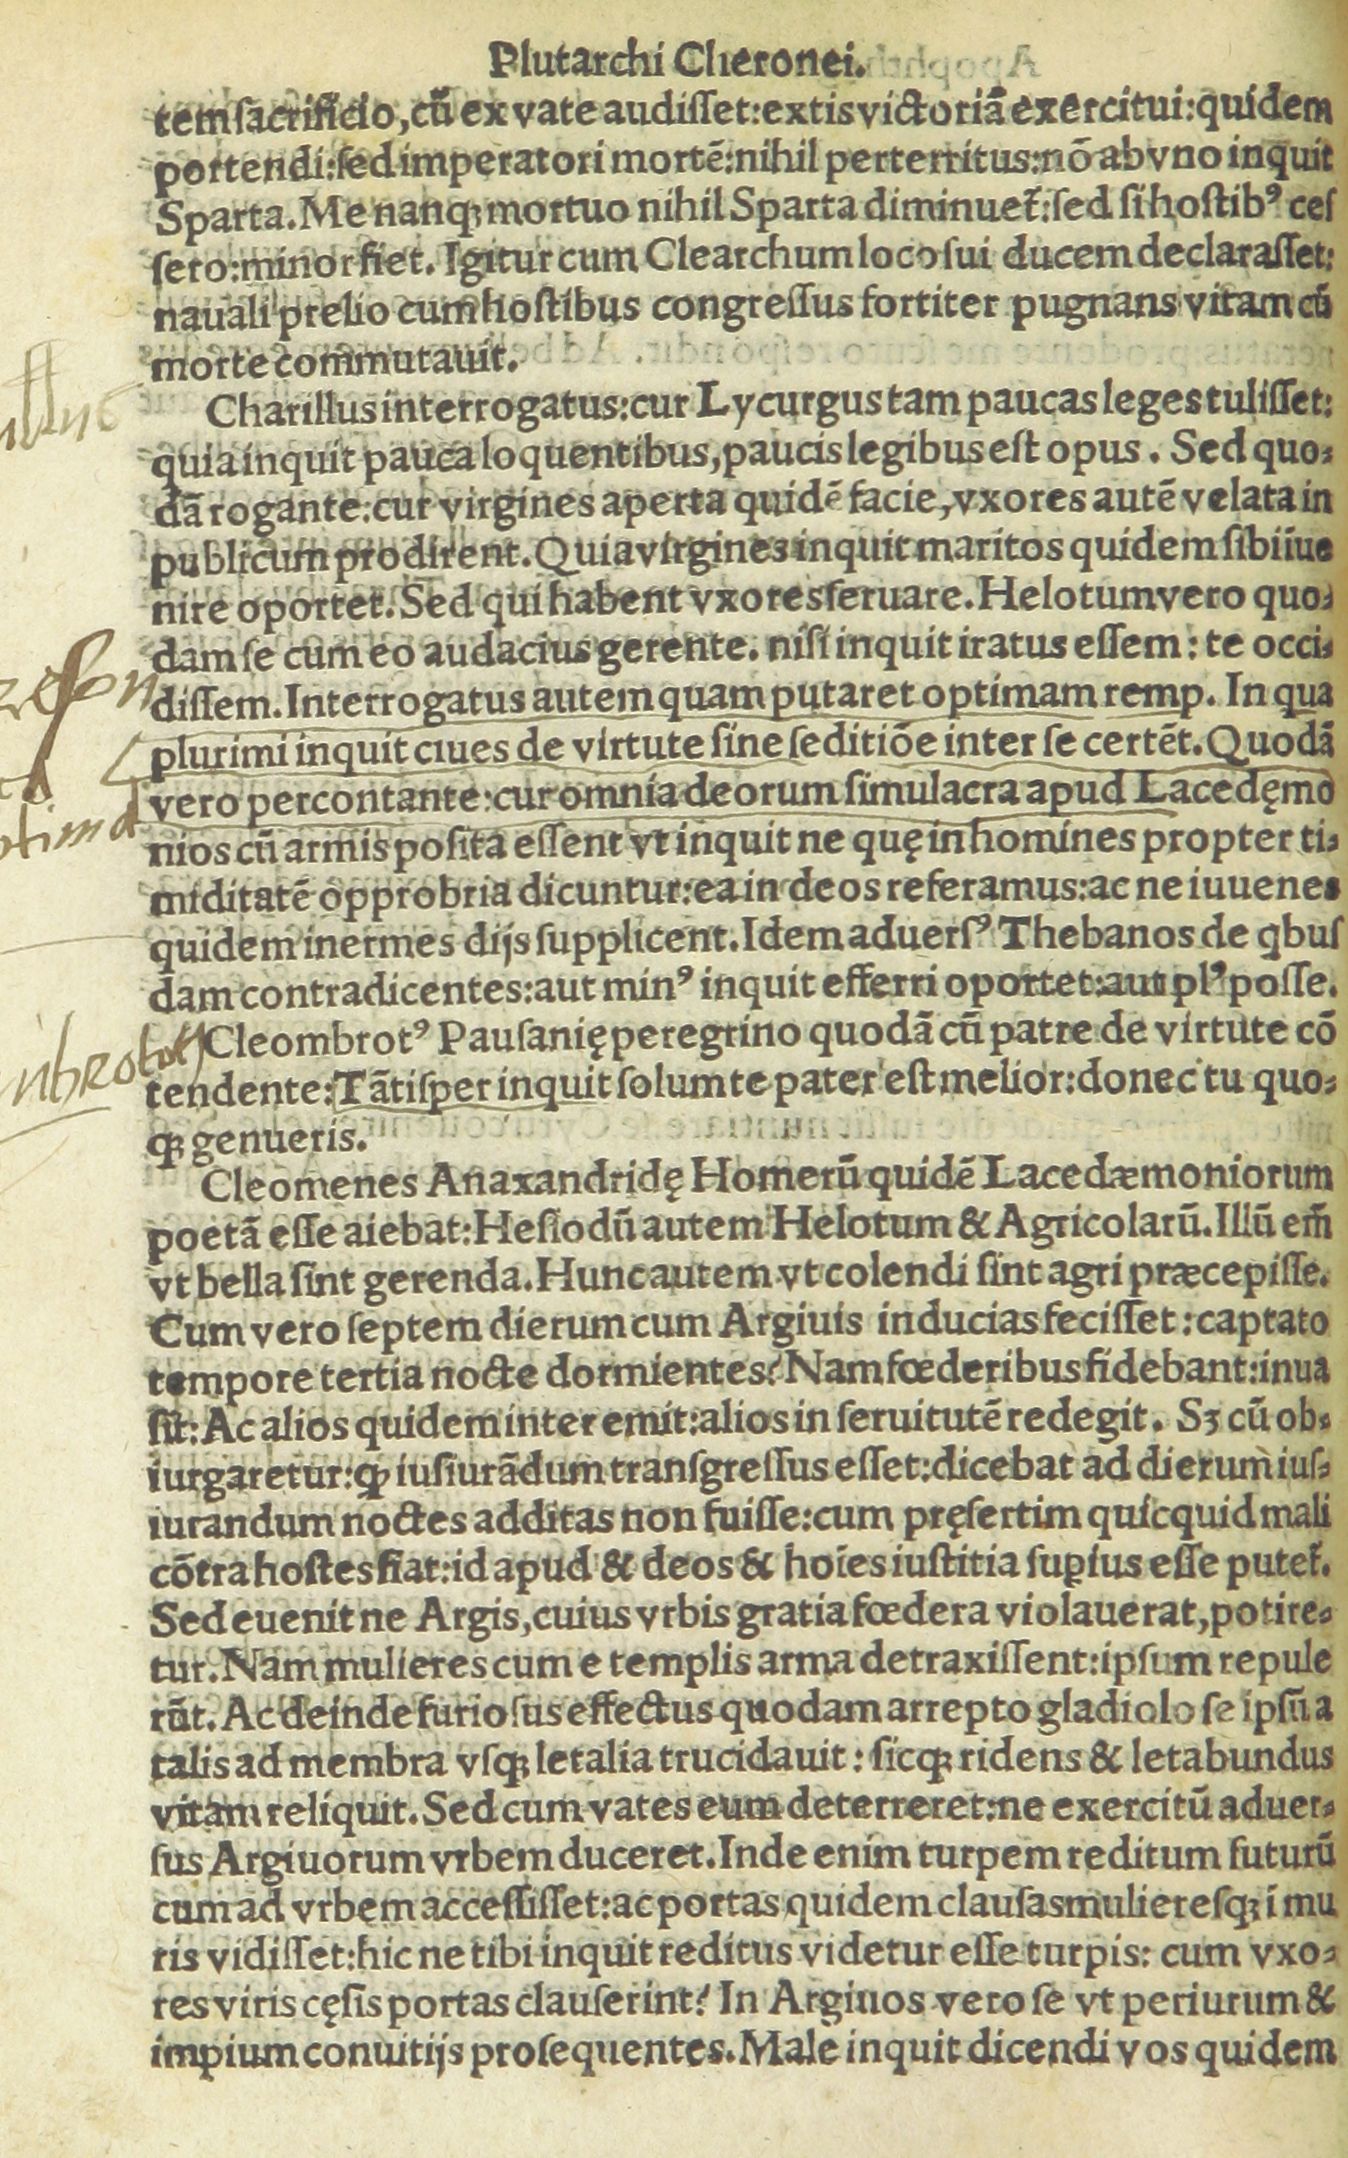 Plutarchi Cheronei.
tem sacrificio, cũ ex vate audiſſet: extis victoriã exercitui: quidem
portendi: ſed imperatori mortẽ: nihil perterritus: nõ ab vno inquit
Sparta. Me nanqꝫ mortuo nihil Sparta diminuet᷑: ſed ſi hoſtibꝰ ceſ
ſero: minor fiet. Igitur cum Clearchum loco ſui ducem declaraſſet:
nauali prelio cum hoſtibus congreſſus fortiter pugnans vitam cũ
morte commutauit.
Charillus interrogatus: cur Lycurgus tam paucas leges tuliſſet:
quia inquit pauca loquentibus, paucis legibus eſt opus. Sed quo-
dã rogante: cur virgines aperta quidẽ facie, vxores autẽ velata in
publicum prodirent. Quia virgines inquit maritos quidem ſibi iue
nire oportet. Sed qui habent vxores ſeruare. Helotum vero quo-
dam ſe cum eo audacius gerente. niſi inquit iratus eſſem: te occi-
diſſem. Interrogatus autem quam putaret optimam remp. In qua
plurimi inquit ciues de virtute ſine ſeditiõe inter ſe certẽt. Quodã
vero percontante: cur omnia deorum ſimulacra apud Lacedęmo
nios cũ armis poſita eſſent vt inquit ne quę in homines propter ti-
miditatẽ opprobria dicuntur: ea in deos referamus: ac ne iuuenes
quidem inermes dijs ſupplicent. Idem aduerſꝰ Thebanos de qbuſ
dam contradicentes: aut minꝰ inquit efferri oportet: aut plꝰ poſſe.
Cleombrotꝰ Pauſanię peregrino quodã cũ patre de virtute cõ
tendente: Tãtiſper inquit ſolum te pater eſt melior: donec tu quo-
qꝫ genueris.
Cleomenes Anaxandridę Homerũ quidẽ Lacedæmoniorum
poetã eſſe aiebat: Heſiodũ autem Helotum & Agricolarũ. Illũ em̃
vt bella ſint gerenda. Hunc autem vt colendi ſint agri præcepiſſe.
Cum vero ſeptem dierum cum Argiuis inducias feciſſet: captato
tempore tertia nocte dormientes? Nam fœderibus fidebant: inua
ſit: Ac alios quidem interemit: alios in ſeruitutẽ redegit. Sꝫ cũ ob-
iurgaretur: qꝫ iuſiurãdum tranſgreſſus eſſet: dicebat ad dierum iuſ-
iurandum noctes additas non fuiſſe: cum pręſertim quicquid mali
cõtra hoſtes fiat: id apud & deos & hoĩes iuſtitia ſuꝑius eſſe putet᷑.
Sed euenit ne Argis, cuius vrbis gratia fœdera violauerat, potire-
tur. Nam mulieres cum e templis arma detraxiſſent: ipſum repule
rũt. Ac deinde furioſus effectus quodam arrepto gladiolo ſe ipſũ a
talis ad membra vſqꝫ letalia trucidauit: ſicqꝫ ridens & letabundus
vitam reliquit. Sed cum vates eum deterreret: ne exercitũ aduer-
ſus Argiuorum vrbem duceret. Inde enim turpem reditum futurũ
cum ad vrbem acceſſiſſet: ac portas quidem clauſas mulieresqꝫ ĩ mu
ris vidiſſet: hic ne tibi inquit reditus videtur eſſe turpis: cum vxo-
res viris cęſis portas clauſerint? In Argiuos vero ſe vt periurum &
impium conuitijs proſequentes. Male inquit dicendi vos quidem